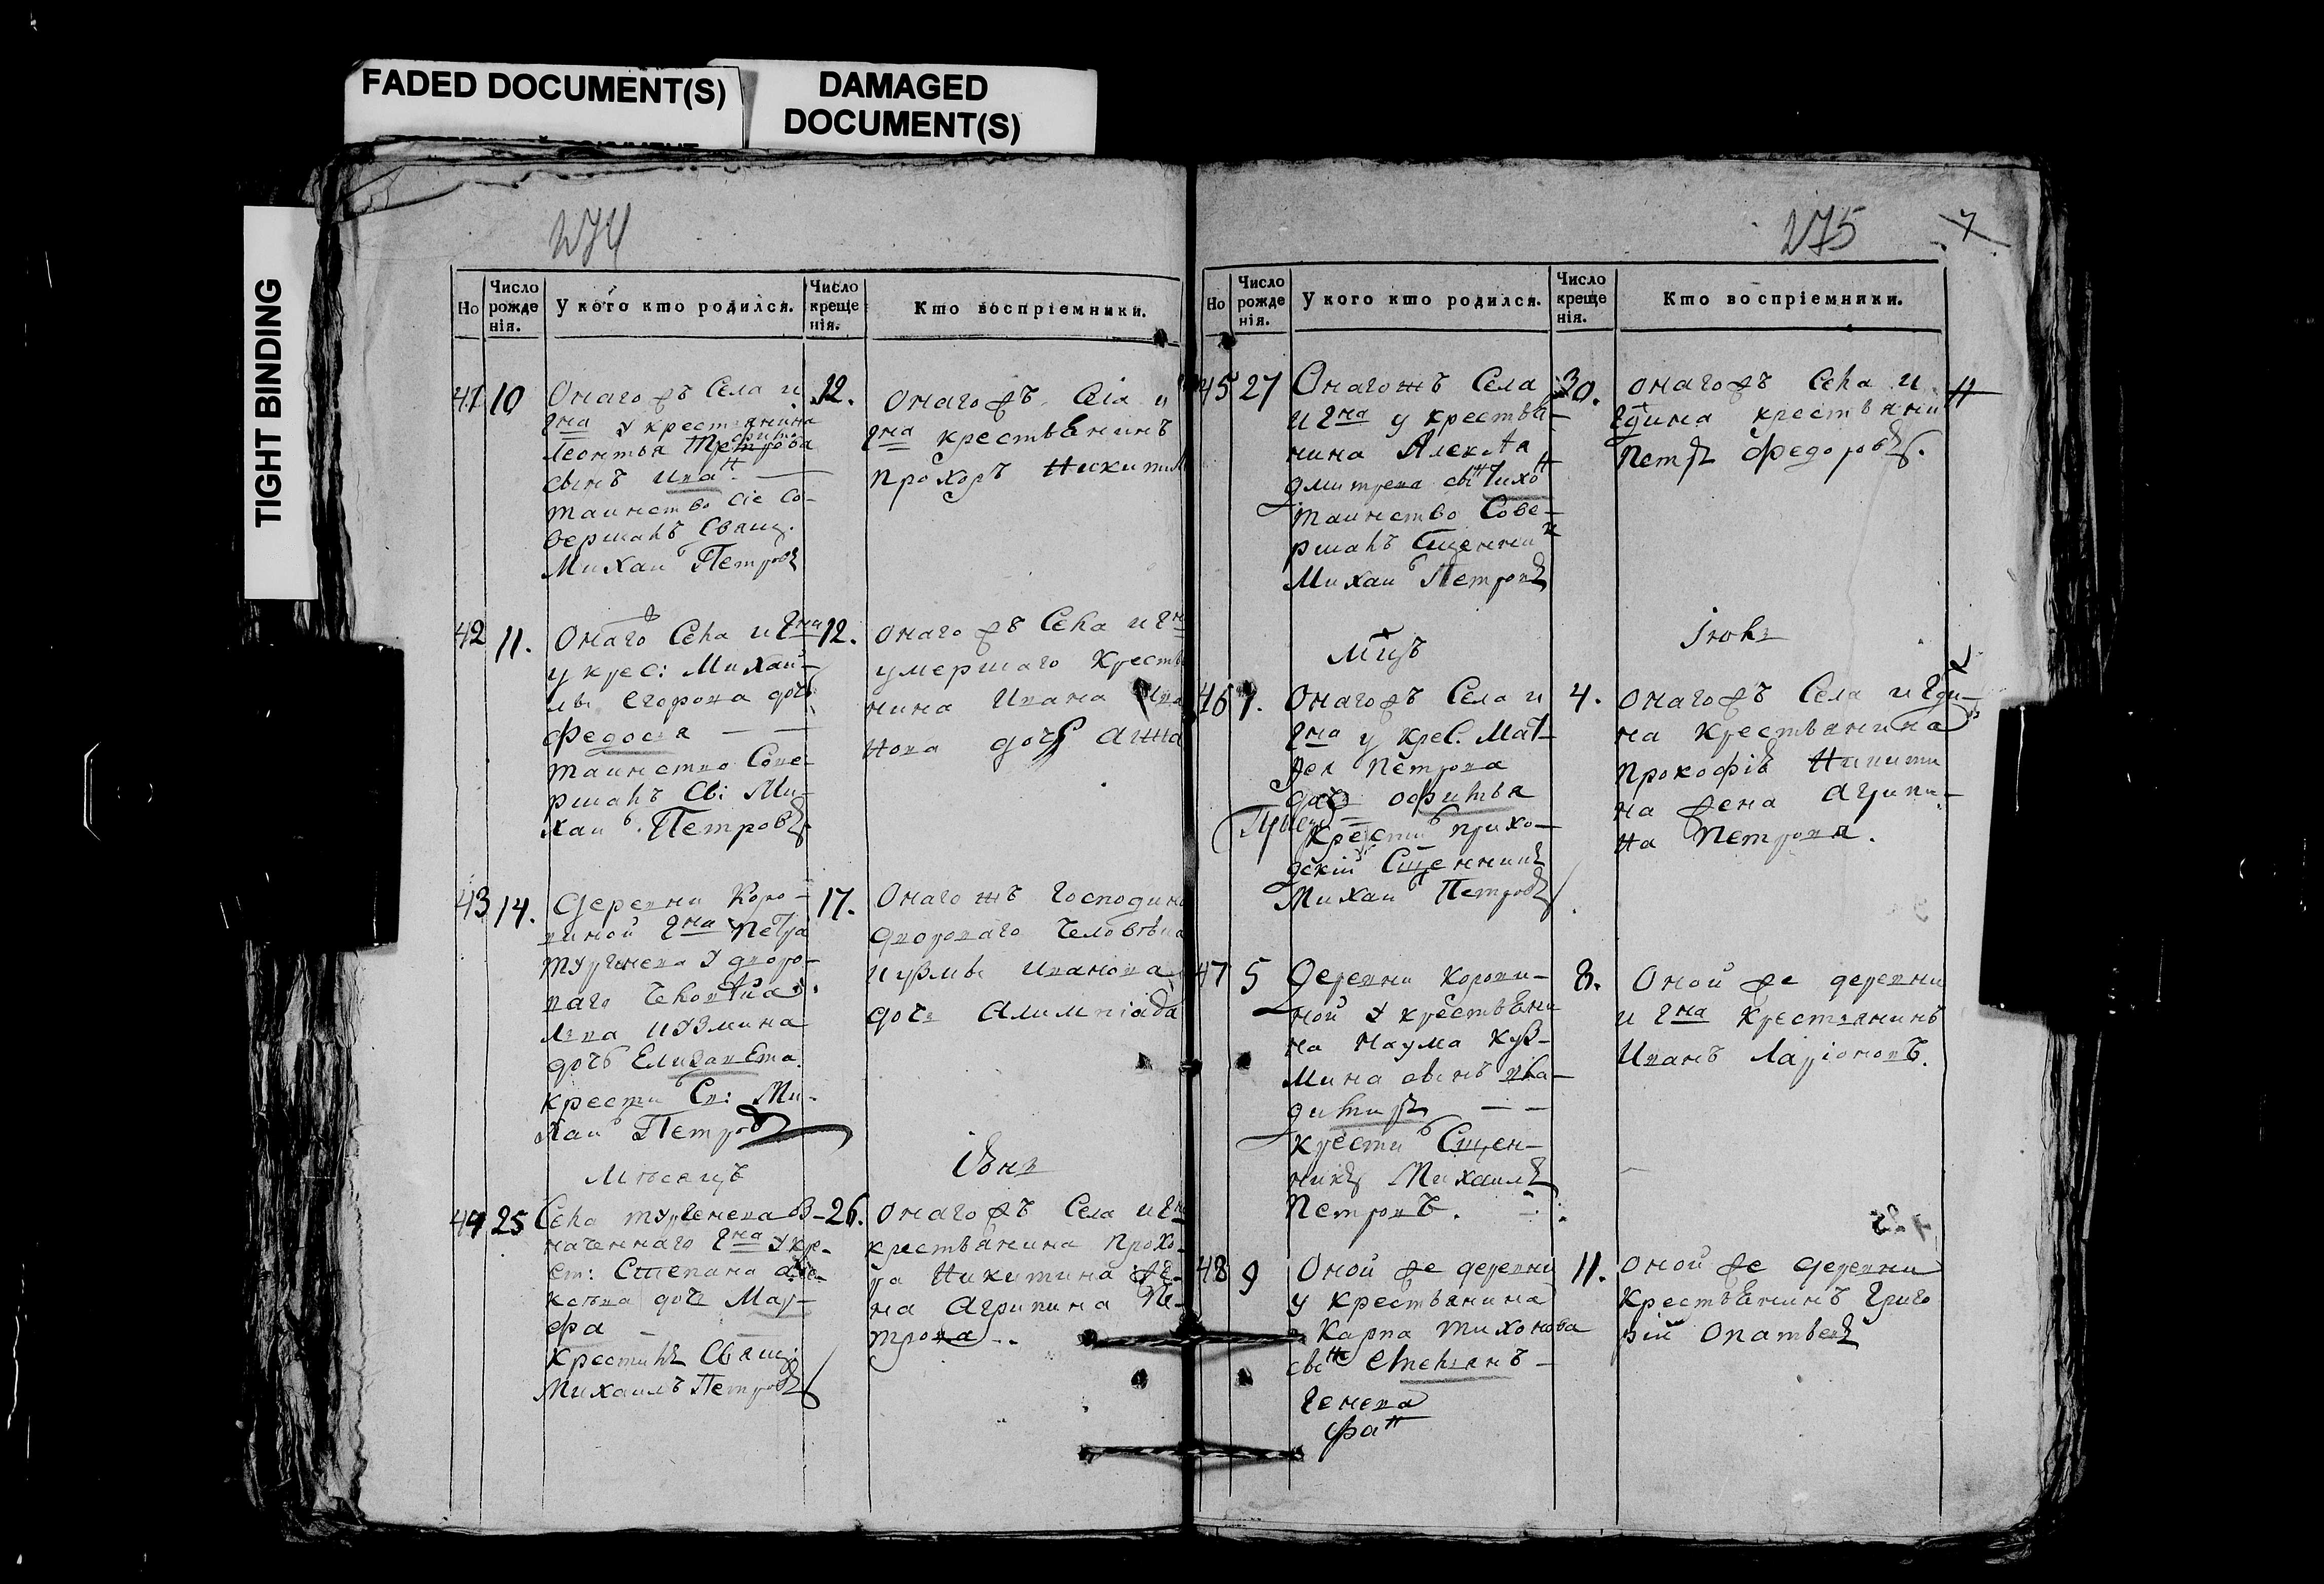 FADED DOCUMENT(S)
DAMAGED
DOCUMENT(S)
TIGHT BINDING
274
Но
Число рожде нія.
У кого кто родился.
Число креще нія.
Кто воспріемники.
41 10
Онагожъ Села и
Гна у крестьянина
Леонтья
сынъ Ива н
таинство сіе со-
вершалъ Свящ.
Михаи л Петровъ
12.
Онагожъ Села и
Гна крестьянинъ
Прохоръ Никитин
42 11.
Онаго Села и Гна
у крес: Михаи-
лы Егорова дочь
Федосья
таинство Сове-
ршалъ Св: Ми-
хаи л. Петровъ
12.
Онагожъ Села и Гна
умершаго Кресть
нина Ивана Ива
нова дочь Анна
43 14.
Деревни Коро-
виной Гна Петра
Тургенева у дворо-
ваго Человека
Льва Кузмина
дочь Елизавета
крести л Св: Ми-
хаи л Петровъ
17.
Онагожъ Господина
Двороваго Человѣка
Кузмы Иванова
дочь Алимпіада
Мѣсяцъ
Іюнь
44 25
Села Тургенева Оз-
наченнаго Гна у кре-
ст: Степана Але-
ксѣева дочь Мар-
фа
Крестилъ Свящ:
Михаилъ Петровъ
26.
Онагожъ Села и Гна
крестьянина Прохо-
ра Никитина же-
на Агрипина Пе-
трова
275
7
Но
Число рожде нія.
У кого кто родился.
Число креще нія.
Кто воспріемники.
45 27
Онагожъ Села
и Гна у крестья-
нина Алексѣя
Дмитрева сы н Тихо н
таинство Сове-
ршалъ Сщенни к
Михаи л Петровъ
30.
Онагожъ Села и
Гдина крестьяни
Петръ Федоровъ.
Мцъ
Іюль
46 1.
Онагожъ Села и
Гна у крес. Мат-
вея Петрова
дочь Офимья
крести л прихо-
дскій Сщенникъ
Михаи л Петровъ
4.
Онагожъ Села и Гди-
на Крестьянина
Прокофія Никити
на жена Агрипи-
на Петрова.
47 5
Деревни Корови-
ной у крестьяни
на Наума Куз-
мина сынъ Вла-
димиръ
крести л Сщен-
никъ Михаилъ
Петровъ.
8.
Оной же деревни
и Гна Крестьянинъ
Иванъ Ларіоновъ.
48 9
Оной же деревни
у крестьянина
Карпа Тихонова
сы н Степанъ
11.
Оной же деревни
Крестьянинъ Григо
рій Опатьевъ